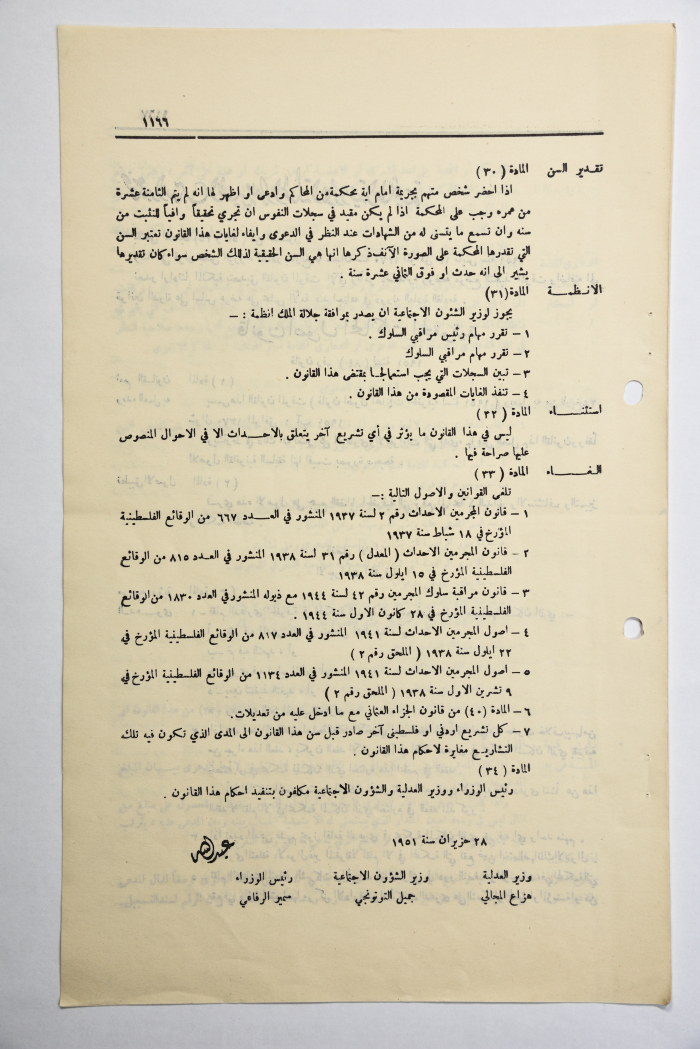 ١١٦٦
تقدير السن المادة (٣٠)
اذا احضر شخص متهم بجريمة امام اية محكمة من المحاكم وادعى او اظهر لها انه لم يتم الثامنة عشرة
من عمره وجب على المحكمة اذا لم يكن مقيد في سجلات النفوس ان تجري تحقيقاً وافياً للتثبت من
سنه وان تسمع ما يتسنى له من الشهادات عند النظر في الدعوى وايفاء لغايات هذا القانون تعتبر السن
التي تقدرها المحكمة على الصورة الآنف ذكرها انها هي السن الحقيقية لذلك الشخص سواء كان تقديرها
يشير الى انه حدث او فوق الثاني عشرة سنة .
الانظمة المادة(٣١)
يجوز لوزير الشئون الاجتماعية ان يصدر بموافقة جلالة الملك انظمة : —
١ — تقرر مهام رئيس مراقبي السلوك .
٢ — تقرر مهام مراقبي السلوك
٣ — تبين السجلات التي يجب استعمالها بمقتضى هذا القانون .
٤ — تنفذ الغايات المقصودة من هذا القانون .
استثناء المادة ( ٣٢ )
ليس في هذا القانون ما يؤثر في أي تشريع آخر يتعلق بالاحداث الا في الاحوال المنصوص
عليها صراحة فيها .
الغاء المادة ( ٣٣ )
تلغى القوانين والاصول التالية :—
١ — قانون المجرمين الاحداث رقم ٢ لسنة ١٩٣٧ المنشور في العدد ٦٦٧ من الوقائع الفلسطينية
المؤرخ في ١٨ شباط سنة ١٩٣٧
٢ — قانون المجرمين الاحداث ( المعدل ) رقم ٣١ لسنة ١٩٣٨ المنشور في العدد ٨١٥ من الوقائع
الفلسطينية المؤرخ في ١٥ ايلول سنة ١٩٣٨
٣ — قانون مراقبة سلوك المجرمين رقم ٤٢ لسنة ١٩٤٤ مع ذيوله المنشور في العدد ١٨٣٠ من الوقائع
الفلسطينية المؤرخ في ٢٨ كانون الاول سنة ١٩٤٤ .
٤ — اصول المجرمين الاحداث لسنة ١٩٤١ المنشور في العدد ٨١٧ من الوقائع الفلسطينية المؤرخ في
٢٢ ايلول سنة ١٩٣٨ ( الملحق رقم ٢ )
٥ — اصول المجرمين الاحداث لسنة ١٩٤١ المنشور في العدد ١١٣٤ من الوقائع الفلسطينية المؤرخ في
٩ تشرين الاول سنة ١٩٣٨ ( الملحق رقم ٢ )
٦ — المادة (٤٠) من قانون الجزاء العثماني مع ما ادخل عليه من تعديلات.
٧ — كل تشريع اردني او فلسطيني آخر صادر قبل سن هذا القانون الى المدى الذي تكون فيه تلك
التشاريع مغايرة لاحكام هذا القانون .
المادة ( ٣٤ )
رئيس الوزراء ووزير العدلية والشؤون الاجتماعية مكلفون بتنفيد احكام هذا القانون .
٢٨ حزيران سنة ١٩٥١
عبدالله
وزير العدلية وزير الشؤون الاجتماعية رئيس الوزراء
هزاع المجالي جميل التوتونجي سمير الرفاعي